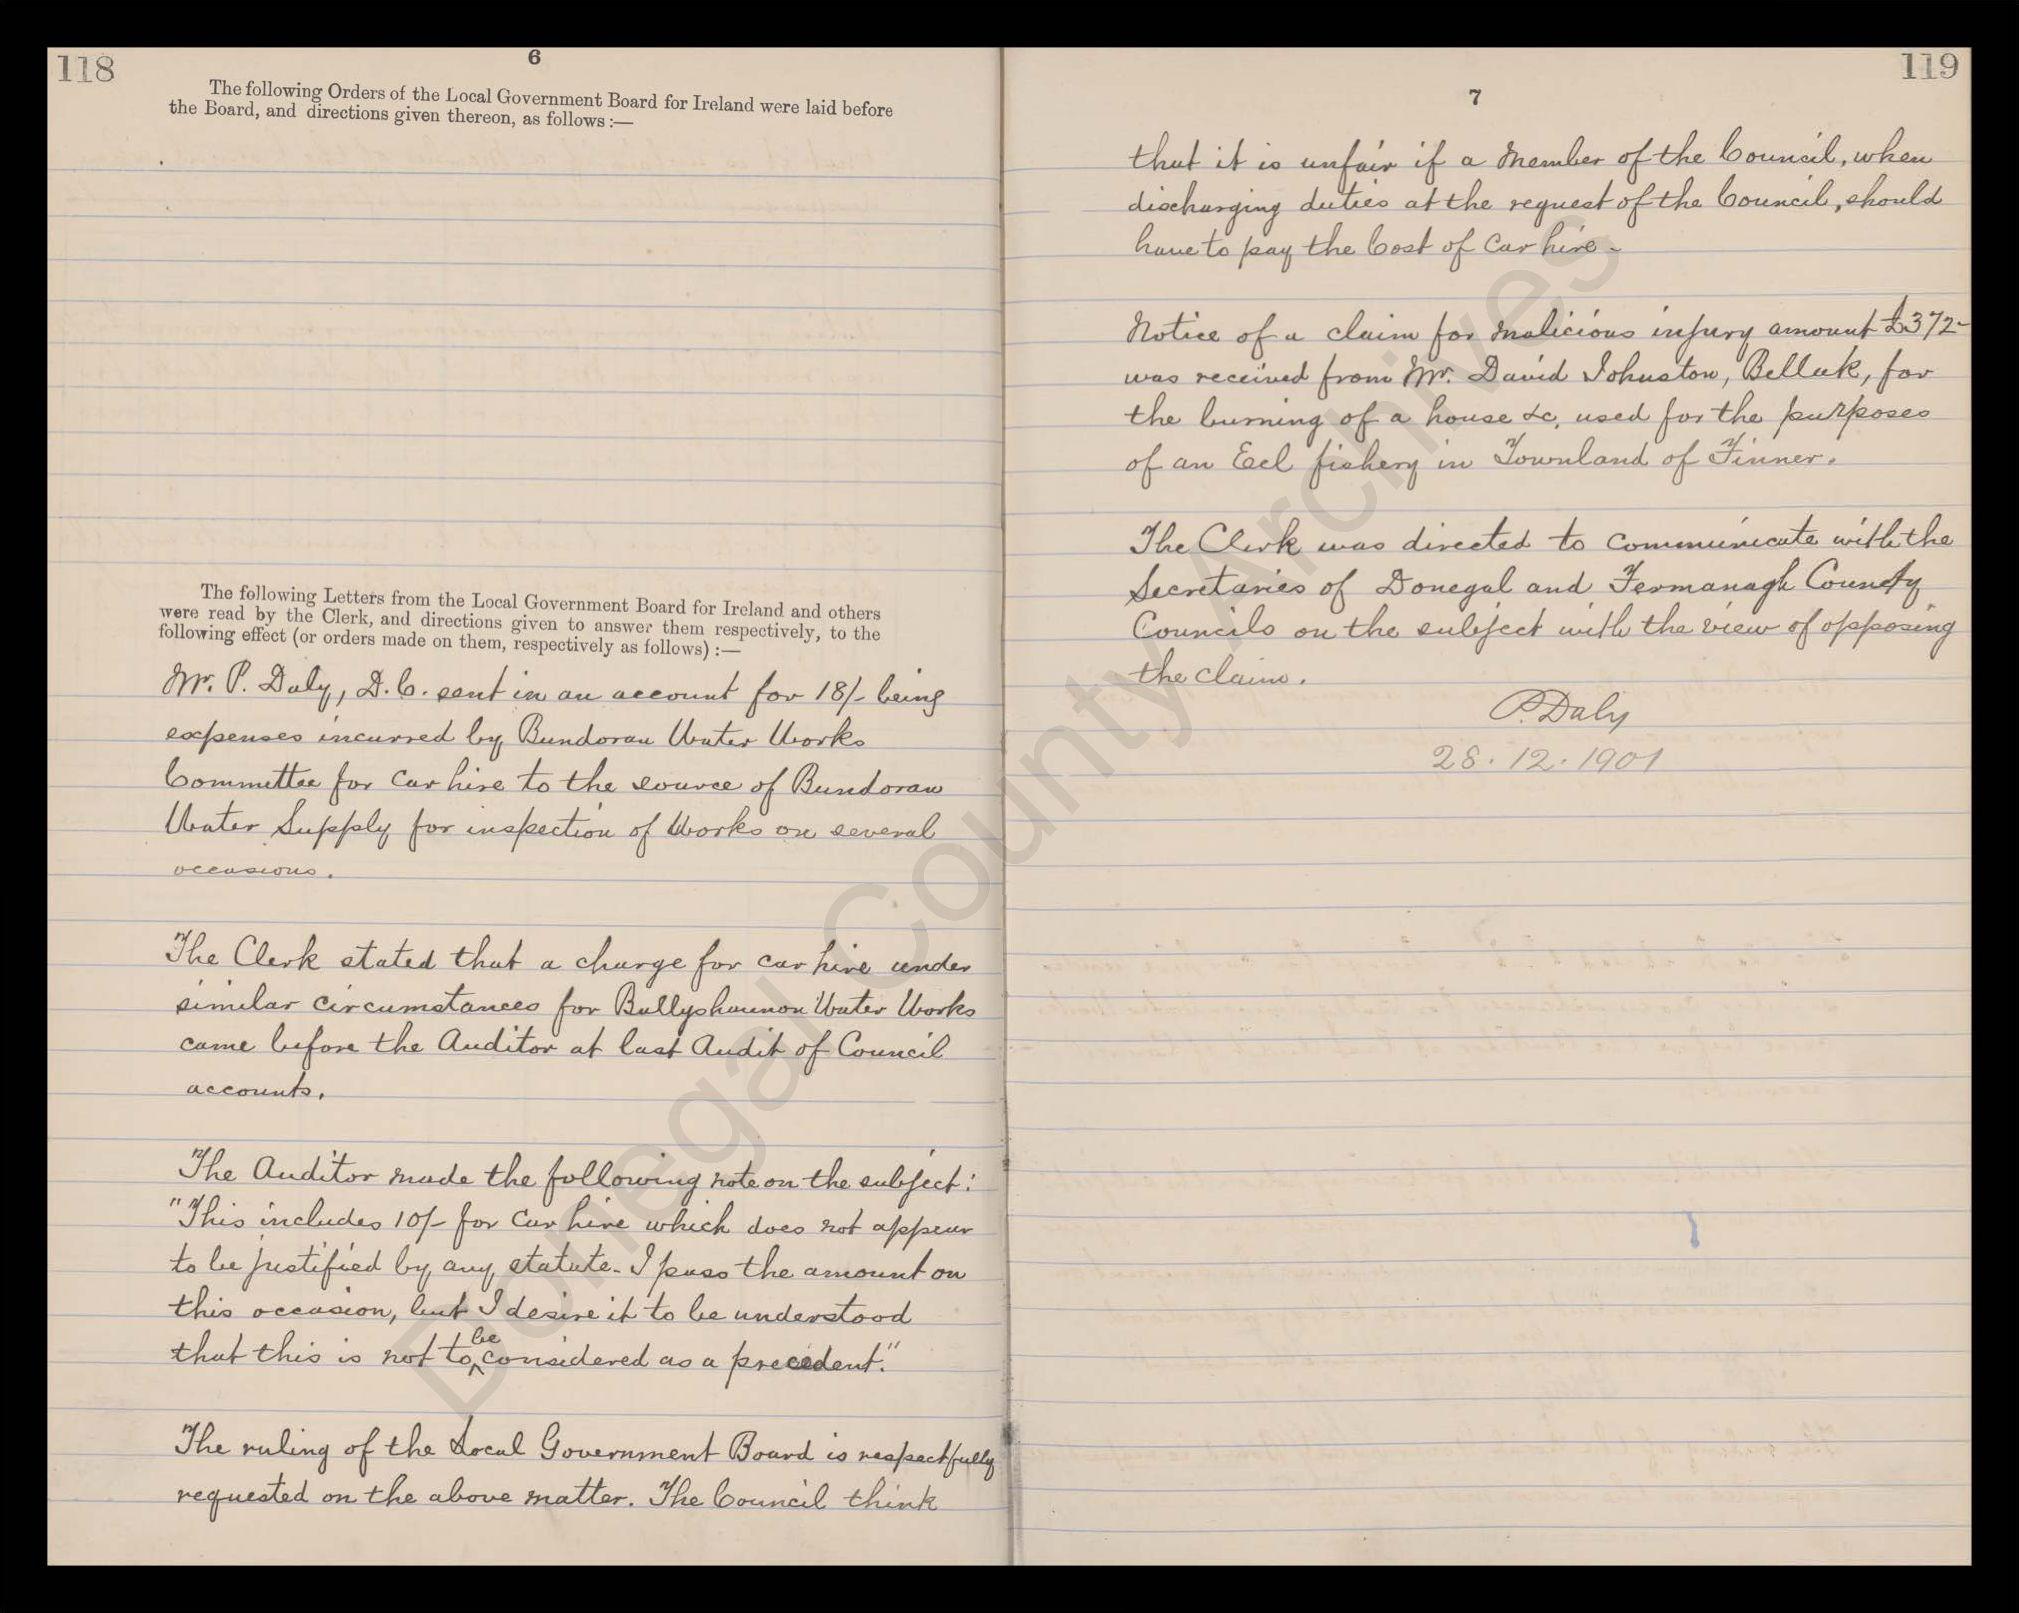 118
6
The following Orders of the Local Government Board for Ireland were laid before
the Board, and directions given thereon, as follows :—
The following Letters from the Local Government Board for Ireland and others
were read by the Clerk, and directions given to answer them respectively, to the
following effect (or orders made on them, respectively as follows) :—
Mr. P. Daly, D.C. sent in an account for 18/- being
expenses incurred by Bundoran Water Works
Committee for car hire to the source of Bundoran
Water Supply for inspection of Works on several
occasions.
The Clerk stated that a charge for car hire under
similar circumstances for Ballyshannon Water Works
came before the Auditor at last Audit of Council
accounts.
The Auditor made the following note on the subject:
"This includes 10/- for car hire which does not appear
to be justified by any statute. I pass the amount on
this occasion, but I desire it to be understood
that this is not to be considered as a precedent."
The ruling of the Local Government Board is respectfully
requested on the above matter. The Council think
119
7
that it is unfair if a Member of the Council, when
discharging duties at the request of the Council, should
have to pay the Cost of Car hire -
Notice of a claim for malicious injury amount £372-
was received from Mr. David Johnston, Belleek, for
the burning of a house &c, used for the purposes
of an Eel fishery in Townland of Finner.
The Clerk was directed to communicate with the
Secretaries of Donegal and Fermanagh County
Councils on the subject with the view of opposing
the claim.
P. Daly
28.12.1901
Donegal County Archives